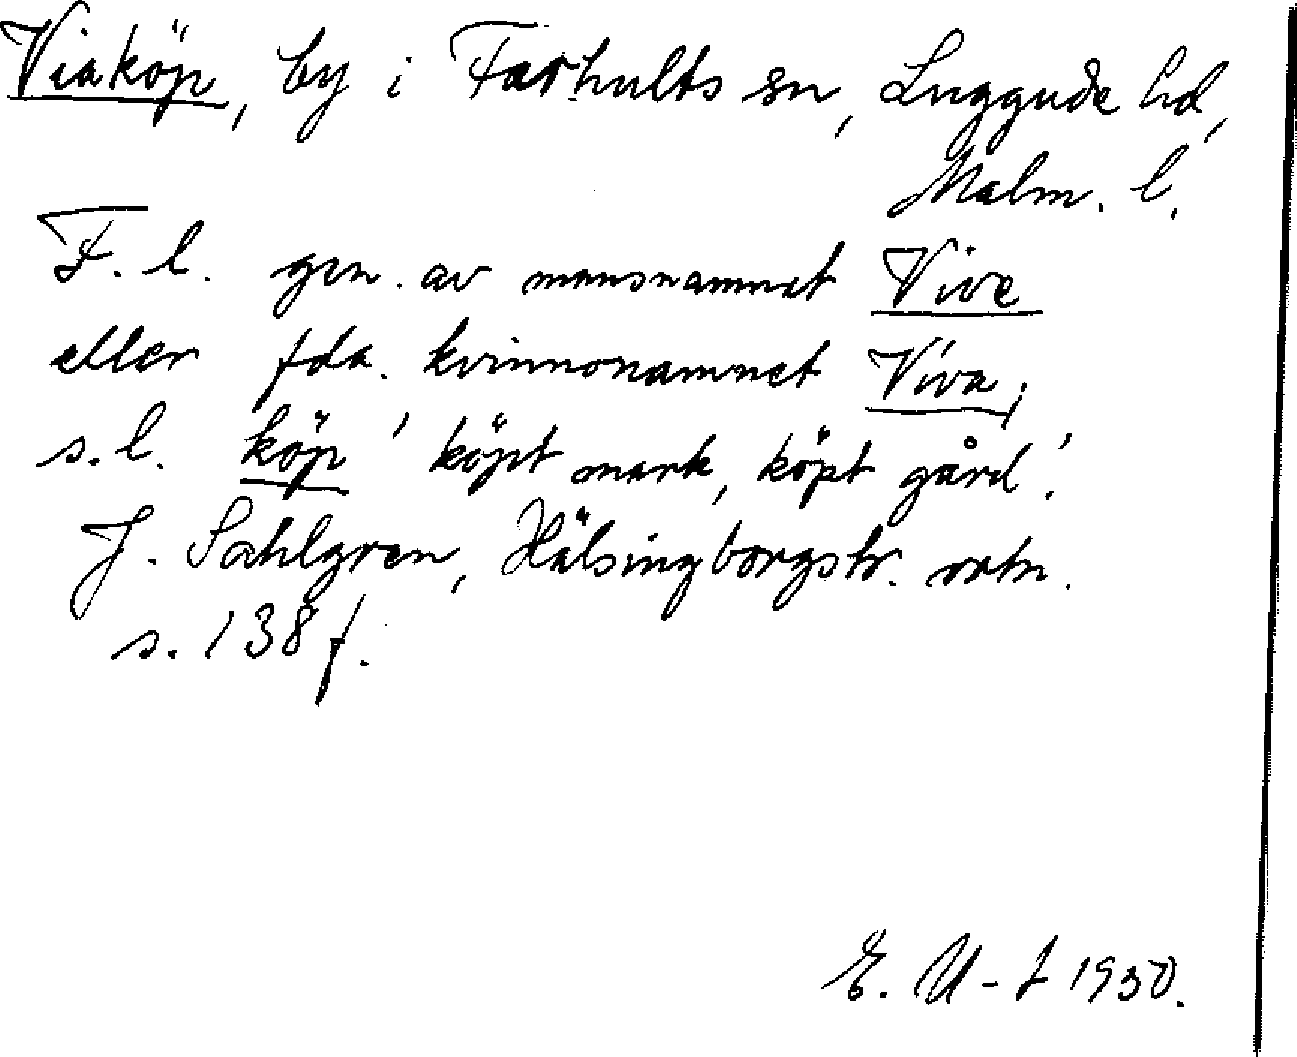 Viaköp, by i Farhults sn, Luggude hd,
Malm. l.
F. l. gen. av mansnamnet Vive
eller fda. kvinnonamnet Viva;
s. l. köp 'köpt mark, köpt gård'.
J. Sahlgren, Hälsingborgstr. ortn.
s. 138 f.
E. U-t 1930.